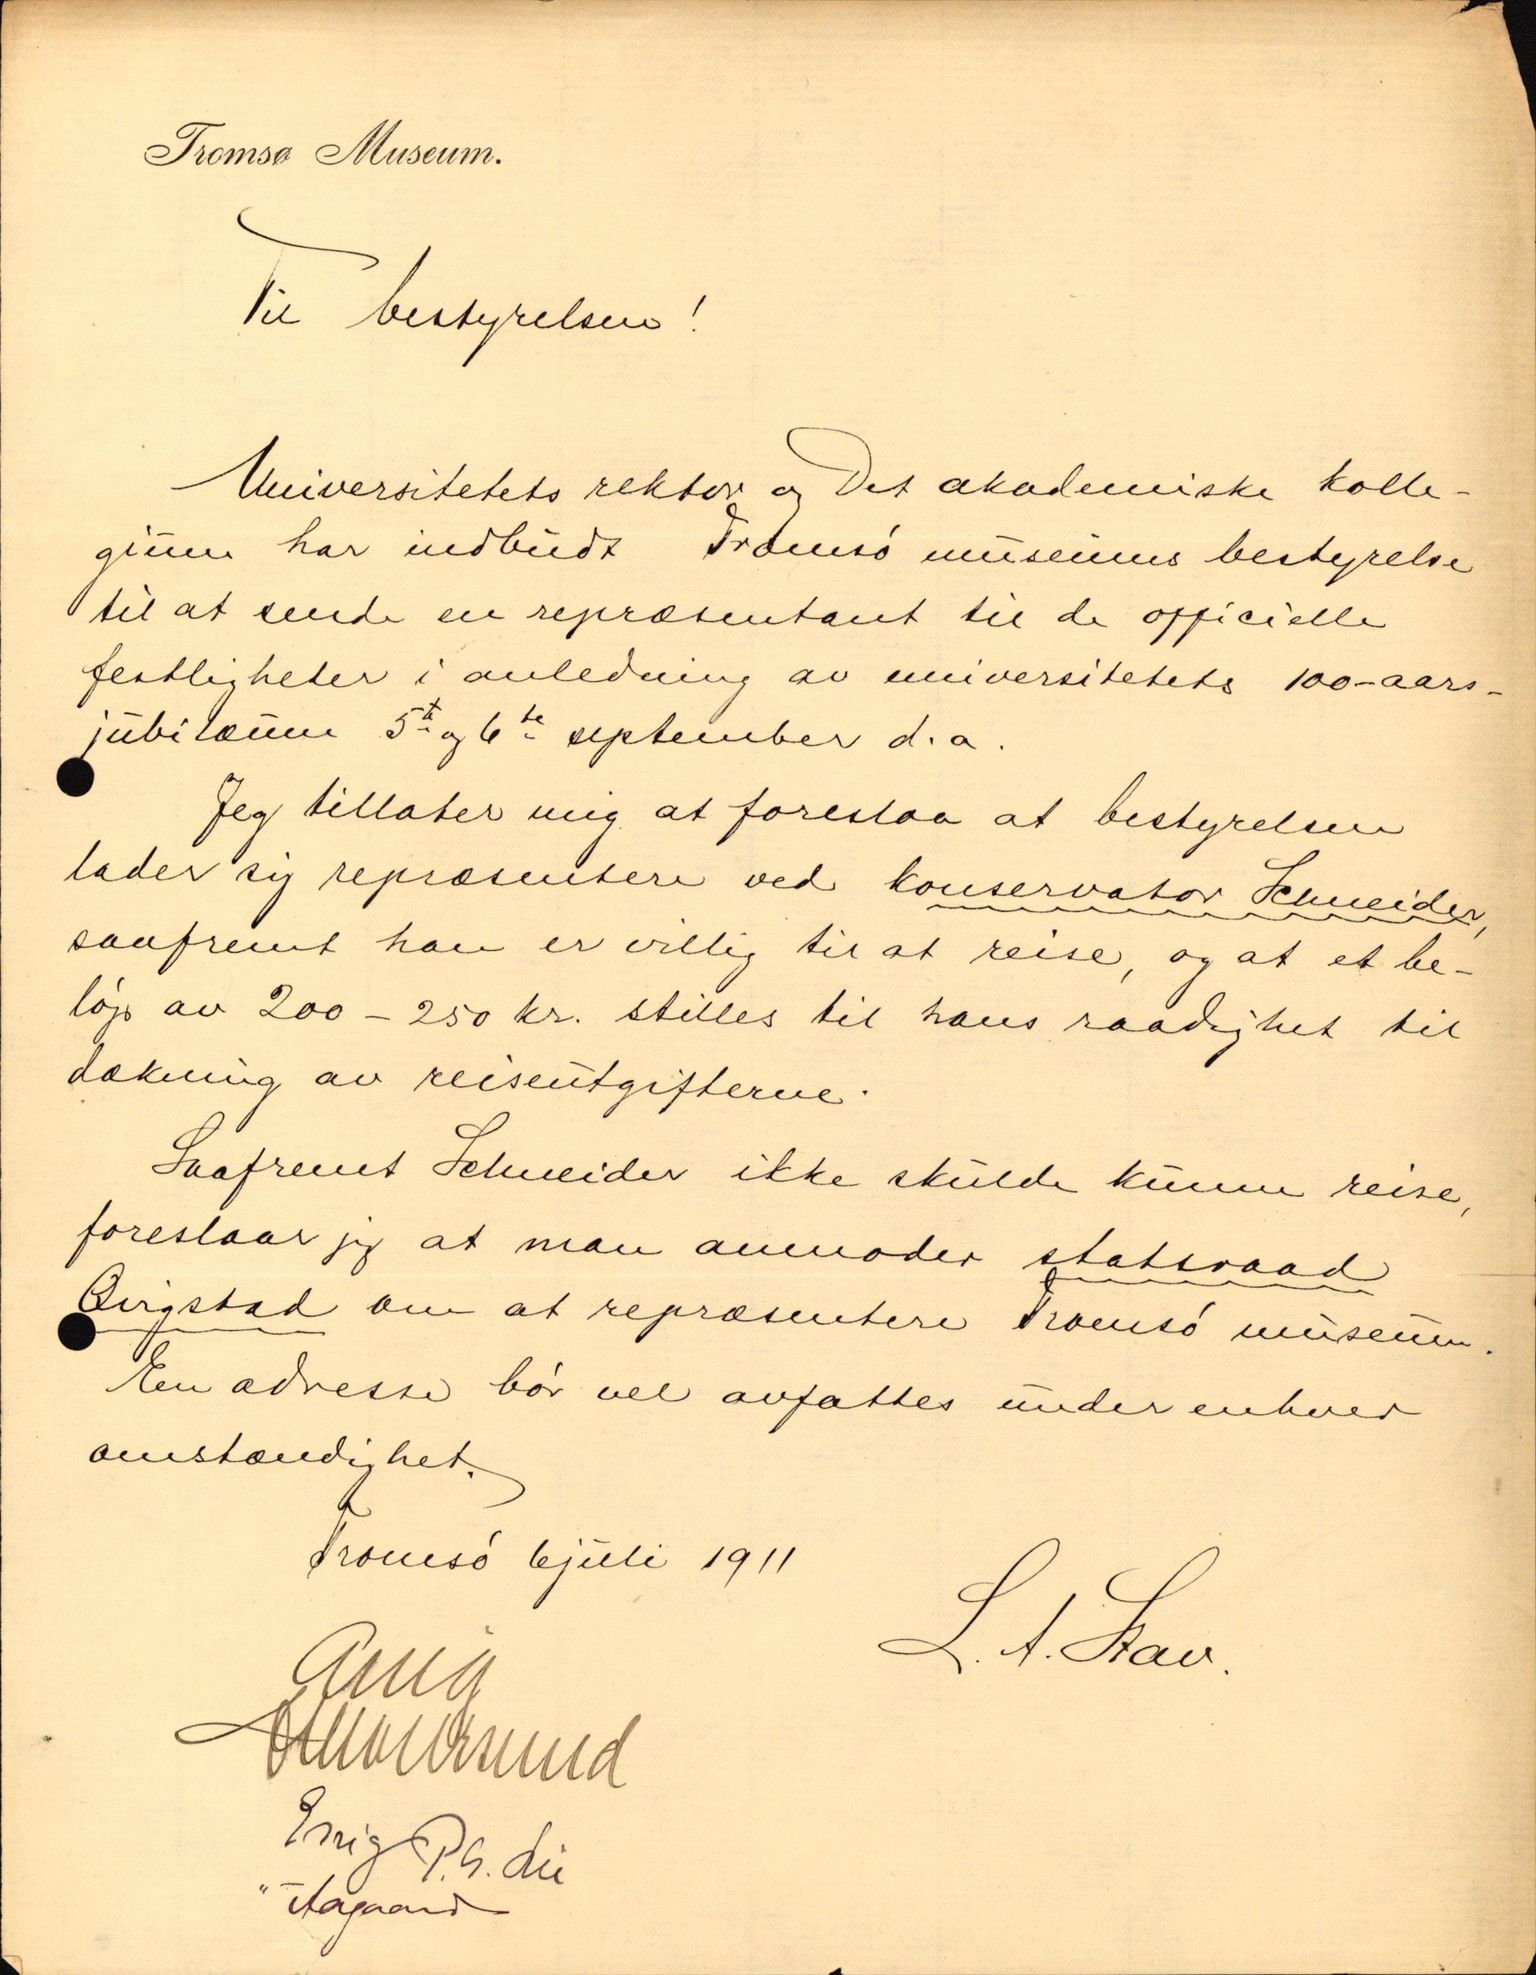 Tromsø Museum.
Til bestyrelsen!
Universitetets rektor og Det akademiske kolle-
gium har indbudt Tromsö museums bestyrelse
til at sende en repræsentant til de officielle
festligheter i anledning av universitetets 100-aars-
jubilæum 5te og 6te september d.a.
Jeg tillater mig at foreslaa at bestyrelsen
lader sig repræsentere ved konservator Schneider,
saafremt han er villig til at reise, og at et be-
löp av 200-250 kr. stilles til hans raadighet til
dækning av reiseutgifterne.
Saafremt Schneider ikke skulde kunne reise,
foreslaar jeg at man anmoder statsraad
Qvigstad om at repræsentere Tromsö museum.
En adresse bör vel avfattes under enhver
omstændighet.
Tromsö 6 juli 1911
L. A. Stav.
Enig
Enig P. G. Lie
" Aagaard